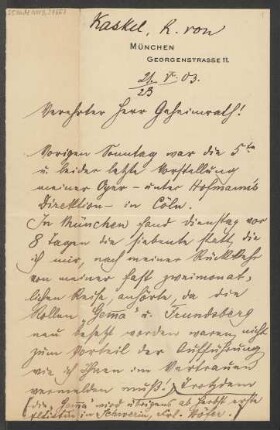 Kaskel, K. von
MÜNCHEN
GEORGENSTRASSE 11.
03.
23
Verehrter Herr Geheimrath!
Vorigen Sonntag war die 5te
u. leider letzte Vorstellung
meiner Oper – unter Hofmann's
Direktion – in Cöln.
In München fand dienstag vor
8 Tagen die siebente statt, die
ich mir, nach meiner Rückkehr
von meiner fast zweimonat-
lichen Reise, anhörte, da die
Rollen "Gema" u. Frundsberg
neu besetzt worden waren, nicht
zum Vorteil der Aufführung,
wie ich ihnen im Vertrauen
vermelden muß. Trotzdem
(die "Gema" wird übrigens ab Herbst eine
in Schwerin, Frl. Höfer.)